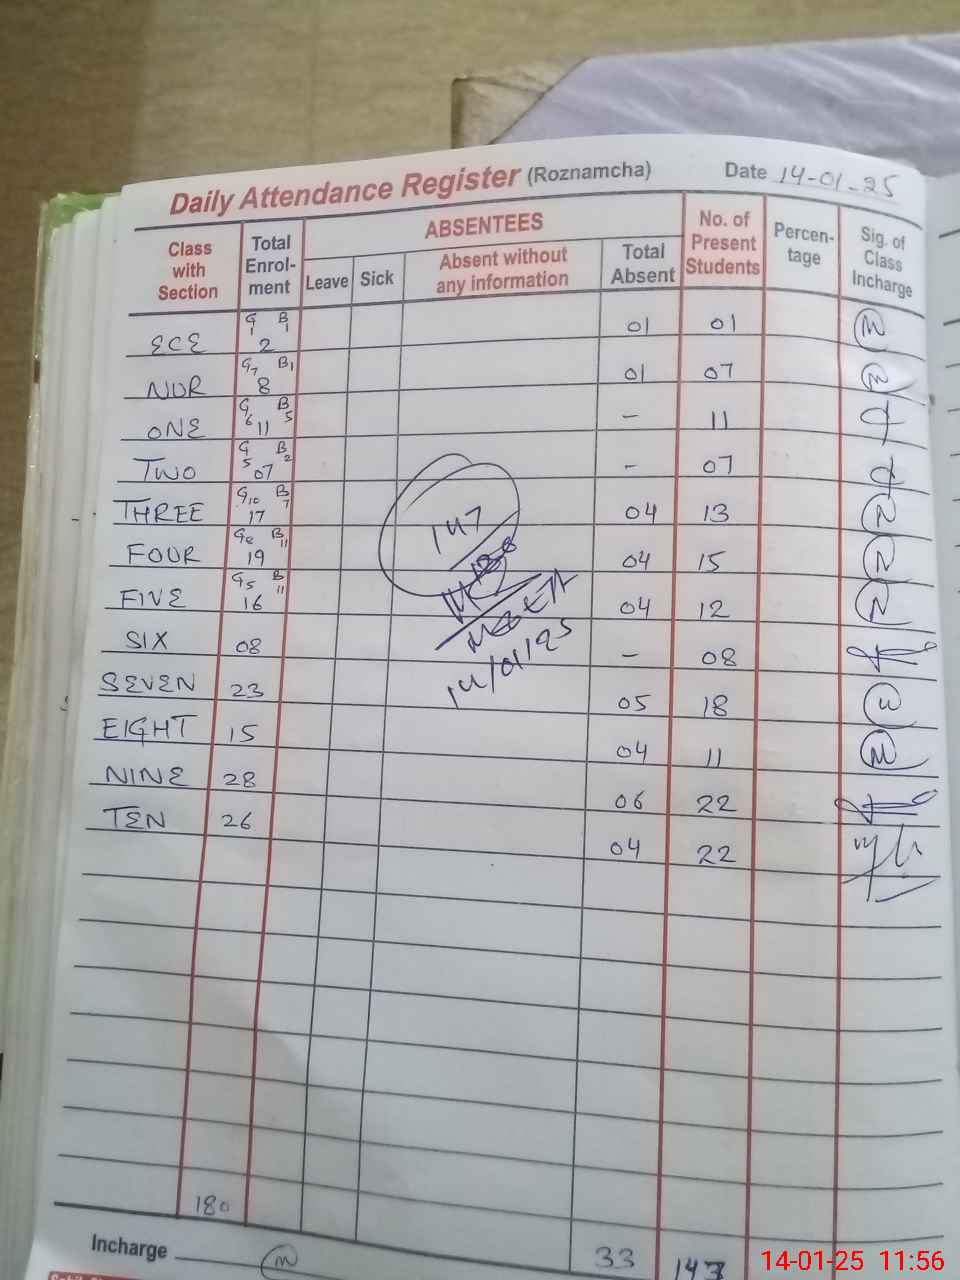 Daily Attendance Register (Roznamcha) Date 14-01-25
Class with Section Total Enrol- ment ABSENTEES Leave Sick Absent without any information Total Absent No. of Present Students Percen- tage Sig. of Class Incharge
ECE G 1 B 1 2 01 01
NUR G 7 B 1 8 01 07
ONE G 6 B 5 11 - 11
TWO G 5 B 2 07 - 07
THREE G 10 B 7 17 04 13
FOUR G 8 B 11 19 04 15
FIVE G 5 B 11 16 04 12
SIX 08 - 08
SEVEN 23 05 18
EIGHT 15 04 11
NINE 28 06 22
TEN 26 04 22
147
14/01/25
180
Incharge 33 147
14-01-25 11:56